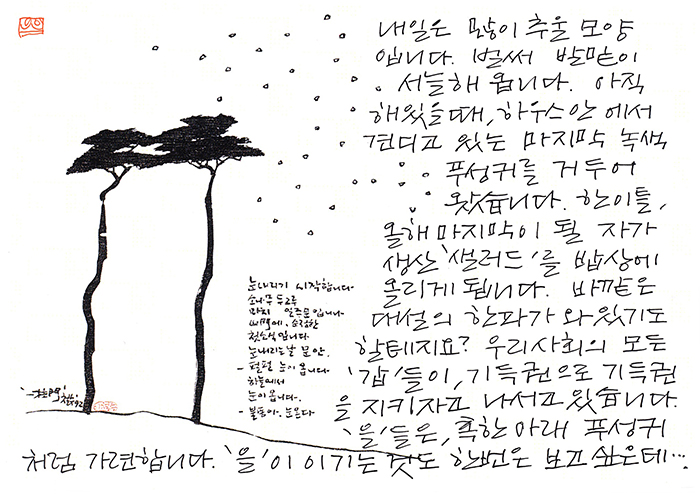 내일은 많이 추울 모양
입니다. 벌써 발밑이
서늘해 옵니다. 아직
해있을때, 하우스안에서
견디고 있는 마지막 녹색
푸성귀를 거두어
왔습니다. 한이틀,
올해 마지막이 될 자가
생산 '샐러드'를 밥상에
올리게 됩니다. 바깥은
대설의 한파가 와있기도
할테지요? 우리사회의 모든
'갑'들이, 기득권으로 기득권
을 지키자고 나서고 있습니다.
'을'들은, 혹한 아래 푸성귀
처럼 가련합니다. '을'이 이기는 것도 한번은 보고 싶은데….
눈내리기 시작합니다.
소나무 두그루
마치 일주문입니다
첫소식입니다
눈내리는날 문안.
- 펄펄 눈이 옵니다
하늘에서
눈이 옵니다.
'一柱門' 徹 92